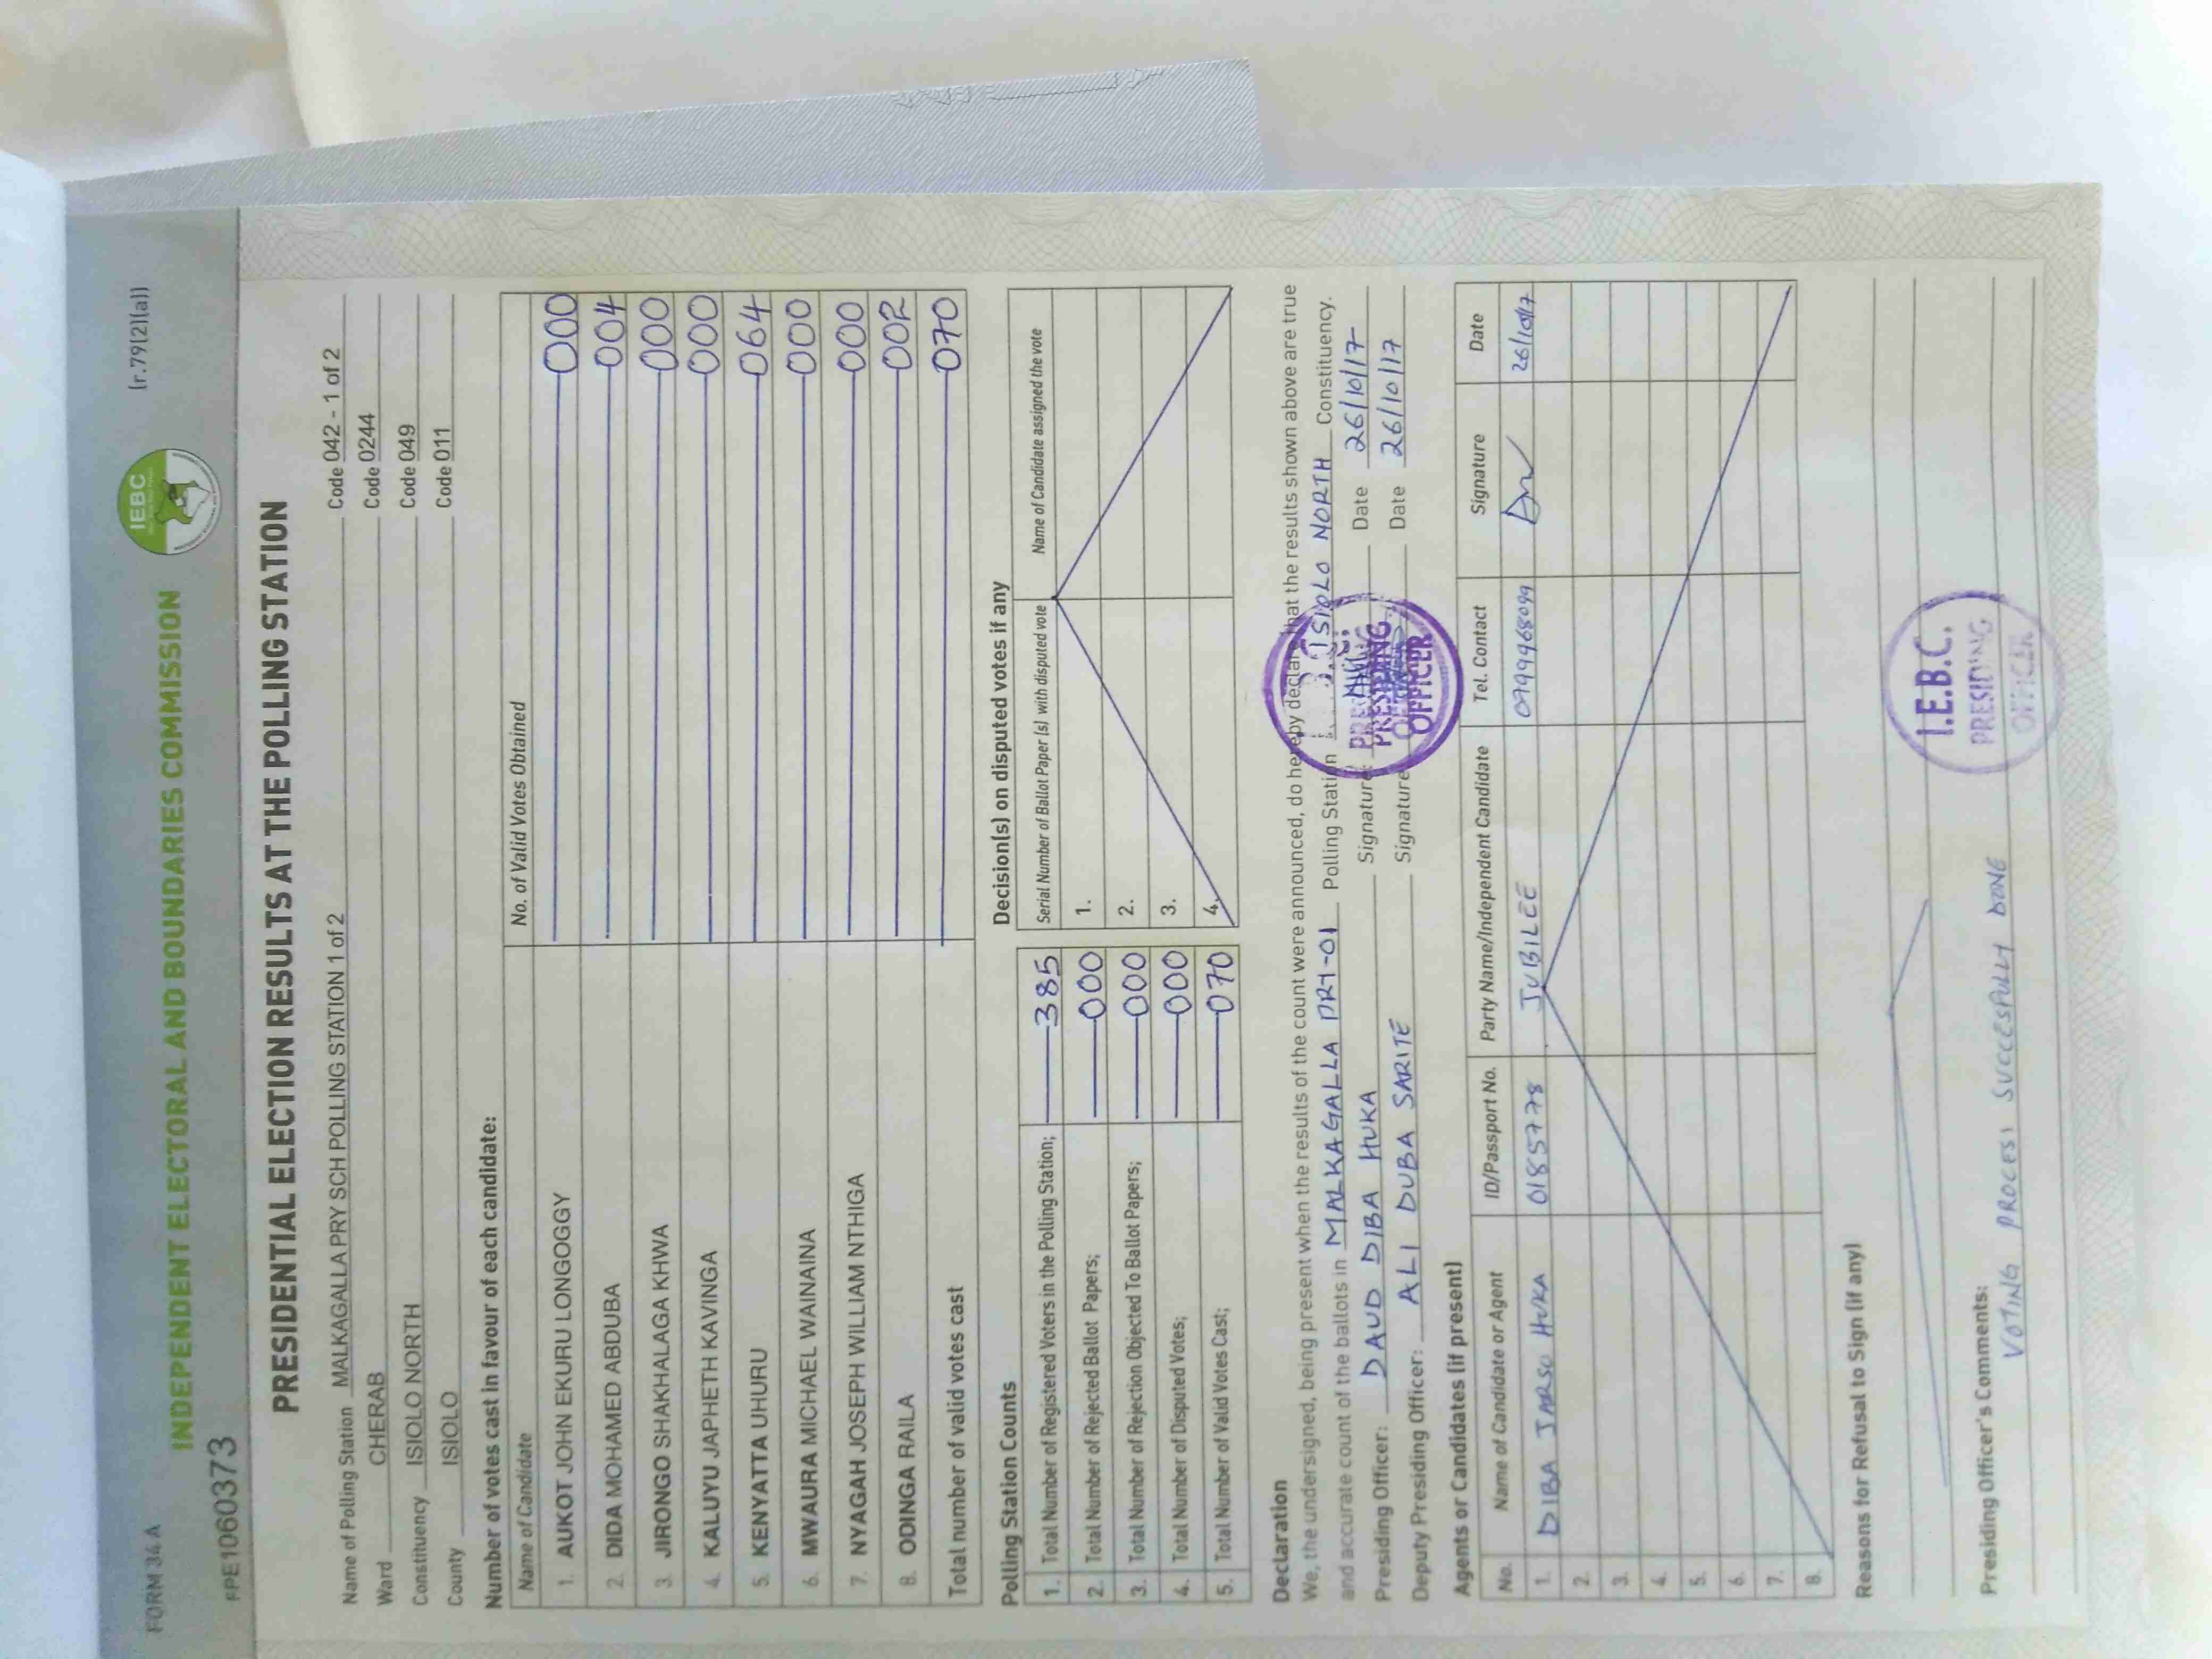 FORM 34 A
(r.79(2)(a))
IEBC
INDEPENDENT ELECTORAL AND BOUNDARIES COMMISSION
FPE1060373
PRESIDENTIAL ELECTION RESULTS AT THE POLLING STATION
Name of Polling Station MALKAGALLA PRY SCH POLLING STATION 1 of 2 Code 042 - 1 of 2
Ward CHERAB Code 0244
Constituency ISIOLO NORTH Code 049
County ISIOLO Code 011
Number of votes cast in favour of each candidate:
Name of Candidate No. of Valid Votes Obtained
1. AUKOT JOHN EKURU LONGOGGY 000
2. DIDA MOHAMED ABDUBA 004
3. JIRONGO SHAKHALAGA KHWA 000
4. KALUYU JAPHETH KAVINGA 000
5. KENYATTA UHURU 064
6. MWAURA MICHAEL WAINAINA 000
7. NYAGAH JOSEPH WILLIAM NTHIGA 000
8. ODINGA RAILA 002
Total number of valid votes cast 070
Polling Station Counts
1. Total Number of Registered Voters in the Polling Station; 385
2. Total Number of Rejected Ballot Papers; 000
3. Total Number of Rejection Objected To Ballot Papers; 000
4. Total Number of Disputed Votes; 000
5. Total Number of Valid Votes Cast; 070
Decision(s) on disputed votes if any
Serial Number of Ballot Paper (s) with disputed vote Name of Candidate assigned the vote
1.
2.
3.
4.
Declaration
We, the undersigned, being present when the results of the count were announced, do hereby declare that the results shown above are true
and accurate count of the ballots in MALKAGALLA PRY-01 Polling Station ISIOLO NORTH Constituency.
Presiding Officer: DAUD DIBA HUKA Signature: Date 26/10/17
Deputy Presiding Officer: ALI DUBA SARITE Signature Date 26/10/17
PRESIDING
OFFICER
Agents or Candidates (if present)
No. Name of Candidate or Agent ID/Passport No. Party Name/Independent Candidate Tel. Contact Signature Date
1. DIBA JARSO HUKA 0185778 JUBILEE 0799968099 26/10/17
2.
3.
4.
5.
6.
7.
8.
Reasons for Refusal to Sign (if any)
Presiding Officer's Comments:
VOTING PROCESS SUCCESFULLY DONE
I.E.B.C.
PRESIDING
OFFICER